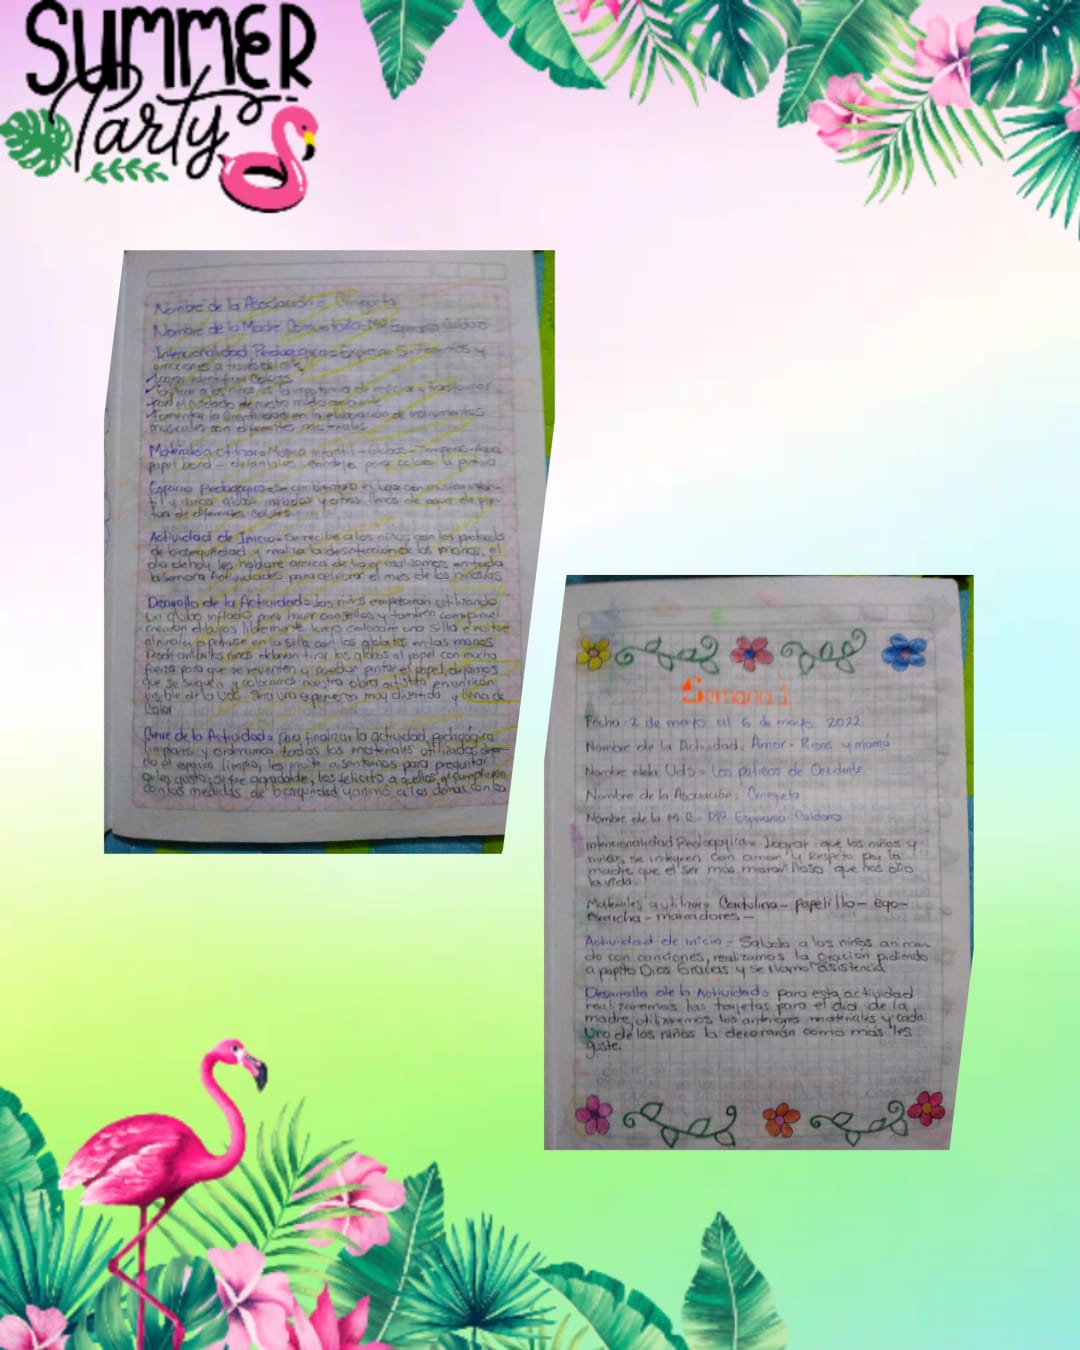 SUMMER
Party
Nombre de la Asociación = Cenegueta
Nombre de la Madre Comunitaria = Mª Esperanza Guidara
Intencionalidad Pedagogica = Expresar Sentimientos y
emociones a través del arte,
lograr identificar Colores
Explicar a los niños/as la importancia de reciclar y trasformar
para el cuidado de nuestro medio ambiente
Fomentar la Creatividad en la elaboración de instrumentos
musicales con diferentes materiales
Materiales a utilizar = Musica infantil - Globos - Temperas - Agua
papel bond - delantales, bandeja para colocar la pintura
Espacio Pedagogico =
y varios globos inflados y otros llenos de agua de pin-
tura de diferentes colores.
Actividad de Inicio = Se recibe a los niños con los protocolos
de bioseguridad y realizar la desinfección de las manos, el
dia de hoy les hablare acerca de lo q realizamos en toda
la semana Actividades para celebrar el mes de los niños/as
Desarrollo de la Actividad = los niños empezaran utilizando
un globo inflado para hacer con sellos y tambien con pincel
crearán dibujos libremente luego colocare una silla e invitare
al niño/a a pararse en la silla con los globitos en las manos
desde arriba los niños deberan tirar los globos al papel con mucha
fuerza para que se revienten y puedan pintar el papel, dejamos
que se sequen y colocamos nuestra obra artistica en un rincón
visible de la Uds. Sera una experiencia muy divertida y llena de
Color
Cierre de la Actividad = para finalizar la actividad pedagógica
limpiares y ordenamos todos los materiales utilizados dejan-
do el espacio limpio, les invito a sentarnos para preguntar
q les gusto, si fue agradable, los felicito a aquellos q cumplieron
con las medidas de bioseguridad y animo a los demas con los
Semana 1
Fecha: 2 de mayo al 6 de mayo 2022
Nombre de la Actividad: Amor - Risas y mamá
Nombre dela Uds = Los paticos de Occidente
Nombre de la Asociación: Cenegueta
Nombre de la M.C = Mª Esperanza Guidara
Intencionalidad Pedagogica = lograr que los niños y
niñas, se integren con amor y Respeto por la
madre que el ser más maravilloso que nos dio
la vida.
Materiales a utilizar = Cartulina - papelillo - ega-
escarcha - marcadores -
Actividad de inicio = Saludo a los niños animan
do con canciones, realizamos la oración pidiendo
a papito Dios Gracias y se llamo asistencia
Desarrollo de la Actividad = para esta actividad
realizaremos las tarjetas para el dia de la
madre, utilizaremos los anteriores materiales y cada
Uno de los niños la decorarán como más les
guste.